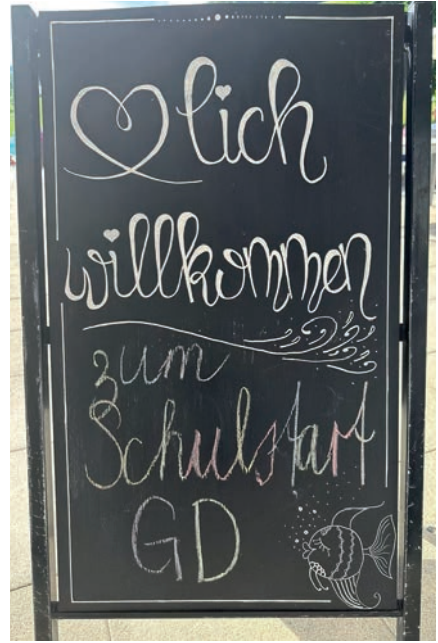 ♥lich
willkommen
zum
Schulstart
GD